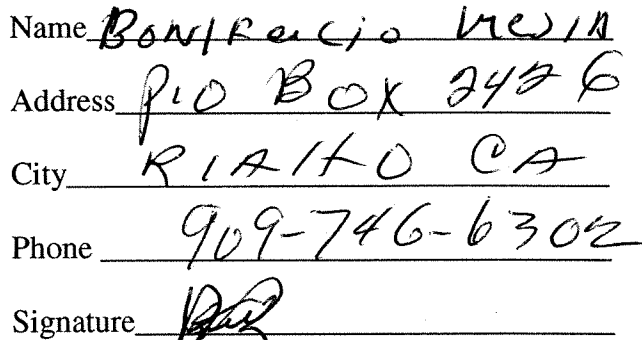 Name Bonifacio
Address P.O Box 2426
City RIAlto CA
Phone 909-746-6302
Signature